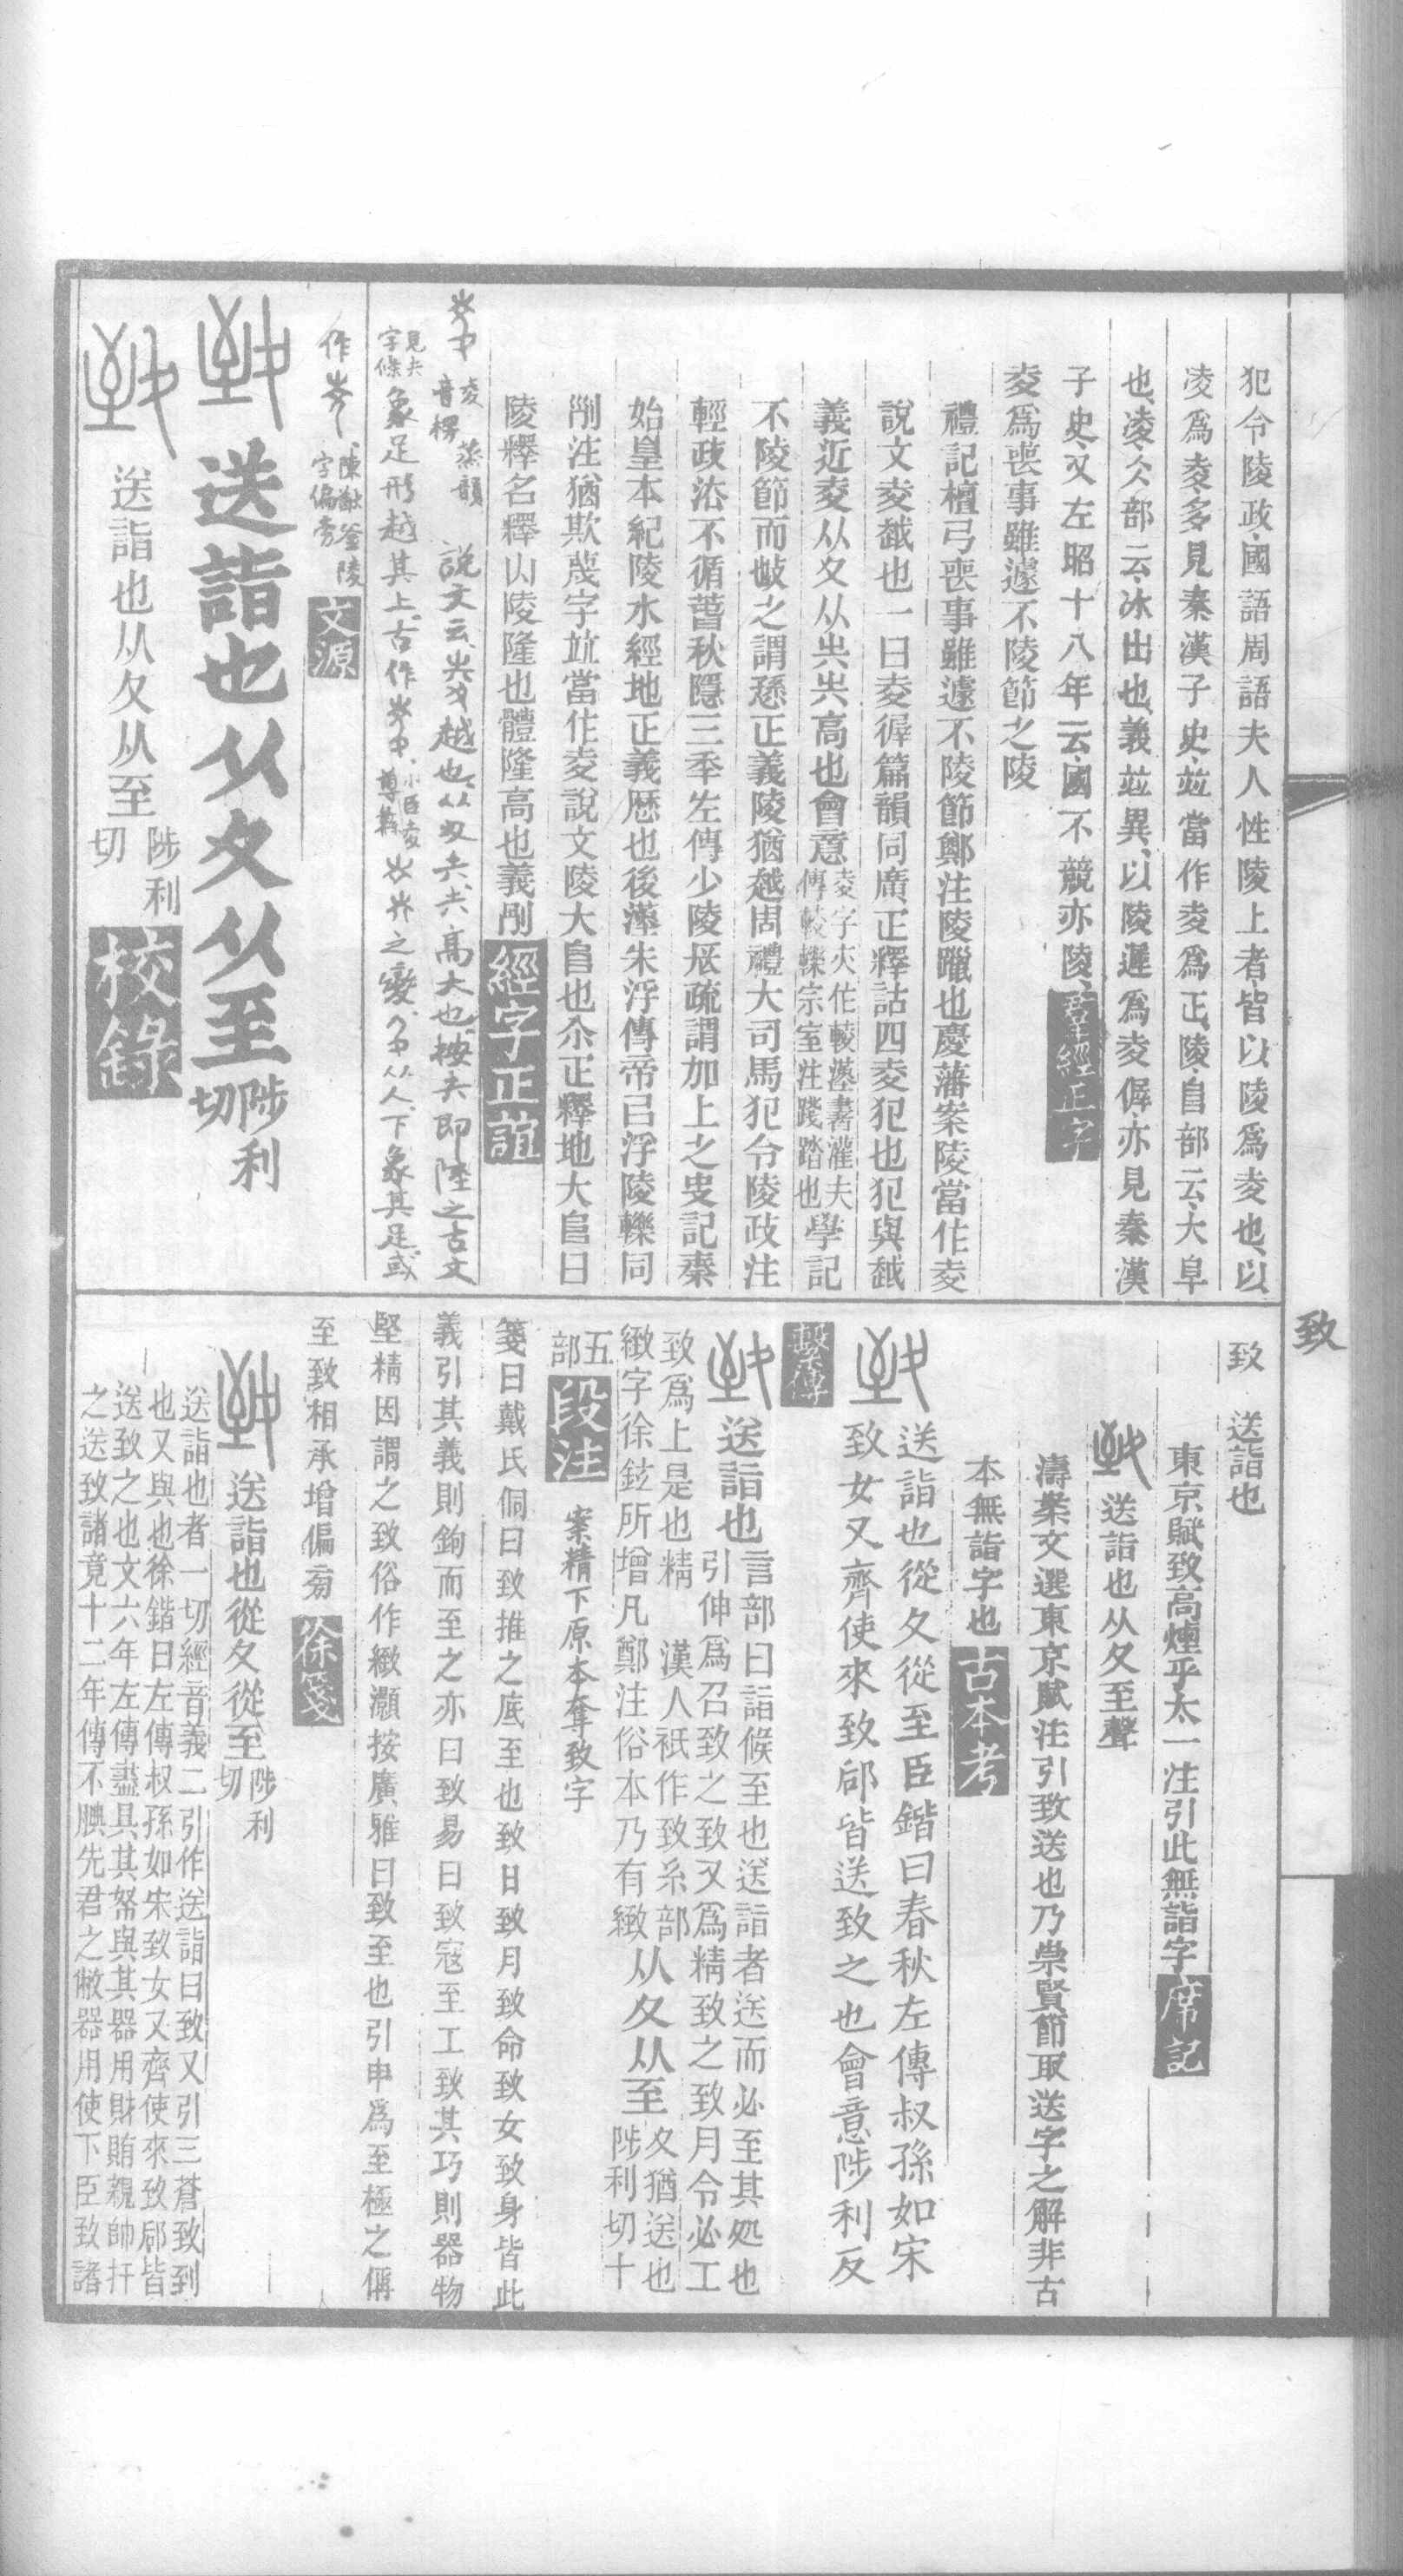 致
犯令陵政國語周語夫人性陵上者皆以陵爲夌也以
凌爲夌多見秦漢子史竝當作夌爲正陵𨸏部云大阜
也凌仌部云冰出也義竝異以陵遲爲夌㣶亦見秦漢
子史又左昭十八年云國不競亦陵羣經正字
夌爲喪事雖遽不陵節之陵
禮記檀弓喪事雖遽不陵節鄭注陵躐也慶藩案陵當作夌
說文夌越也一曰夌徲篇韻同廣正釋詁四夌犯也犯與越
義近夌从夊从㚊㚊高也會意
夌字夾作較漢書灌夫
傳較轢宗室注踐踏也
學記
不陵節而
之謂孫正義陵猶越周禮大司馬犯令陵政注
輕政法不循
秋隱三年左傳少陵長疏謂加上之史記秦
始皇本紀陵水經地正義歷也後漢朱浮傳帝㠯浮陵轢同
削注猶欺蔑字竝當作夌說文陵大𨸏也尒正釋地大𨸏曰
陵釋名釋山陵隆也體隆高也義剐經字正誼
夌蒸韻
音楞
說文云
越也从夊㚊㚊高大也按㚊即陸之古文
見㚊
字條
象足形越其上古作
小臣夌
尊彝
之變
从人下象其足或
作
陳猷釜陵
字偏旁
文源
送詣也从夊从至
陟利
切
送詣也从夊从至
陟利
切
校錄
致
送詣也
東京賦致高煙乎太一注引此無詣字席記
送詣也从夊至聲
濤案文選東京賦注引致送也乃崇賢節取送字之解非古
本無詣字也古本考
送詣也從夊從至臣鍇曰春秋左傳叔孫如宋
致女又齊使來致郈皆送致之也會意陟利反
繫傳
送詣也
言部曰詣候至也送詣者送而必至其処也
引伸爲召致之致又爲精致之致月令必工
致爲上是也精　漢人衹作致糸部
緻字徐鉉所增凡鄭注俗本乃有緻
从夊从至
夊猶送也
陟利切十
五
部
段注
案精下原本奪致字
箋曰戴氏侗曰致推之底至也致日致月致命致女致身皆此
義引其義則鉤而至之亦曰致易曰致寇至工致其巧則器物
堅精因謂之致俗作緻灝按廣雅曰致至也引申爲至極之偁
至致相承增偏㫄徐箋
送詣也從夊從至
陟利
切
送詣也者一切經音義二引作送詣曰致又引三蒼致到
也又與也徐鍇曰左傳叔孫如宋致女又齊使來致郈皆
送致之也文六年左傳盡具其帑與其器用財賄親帥扞
之送致諸竟十二年傳不腆先君之敝器用使下臣致諸